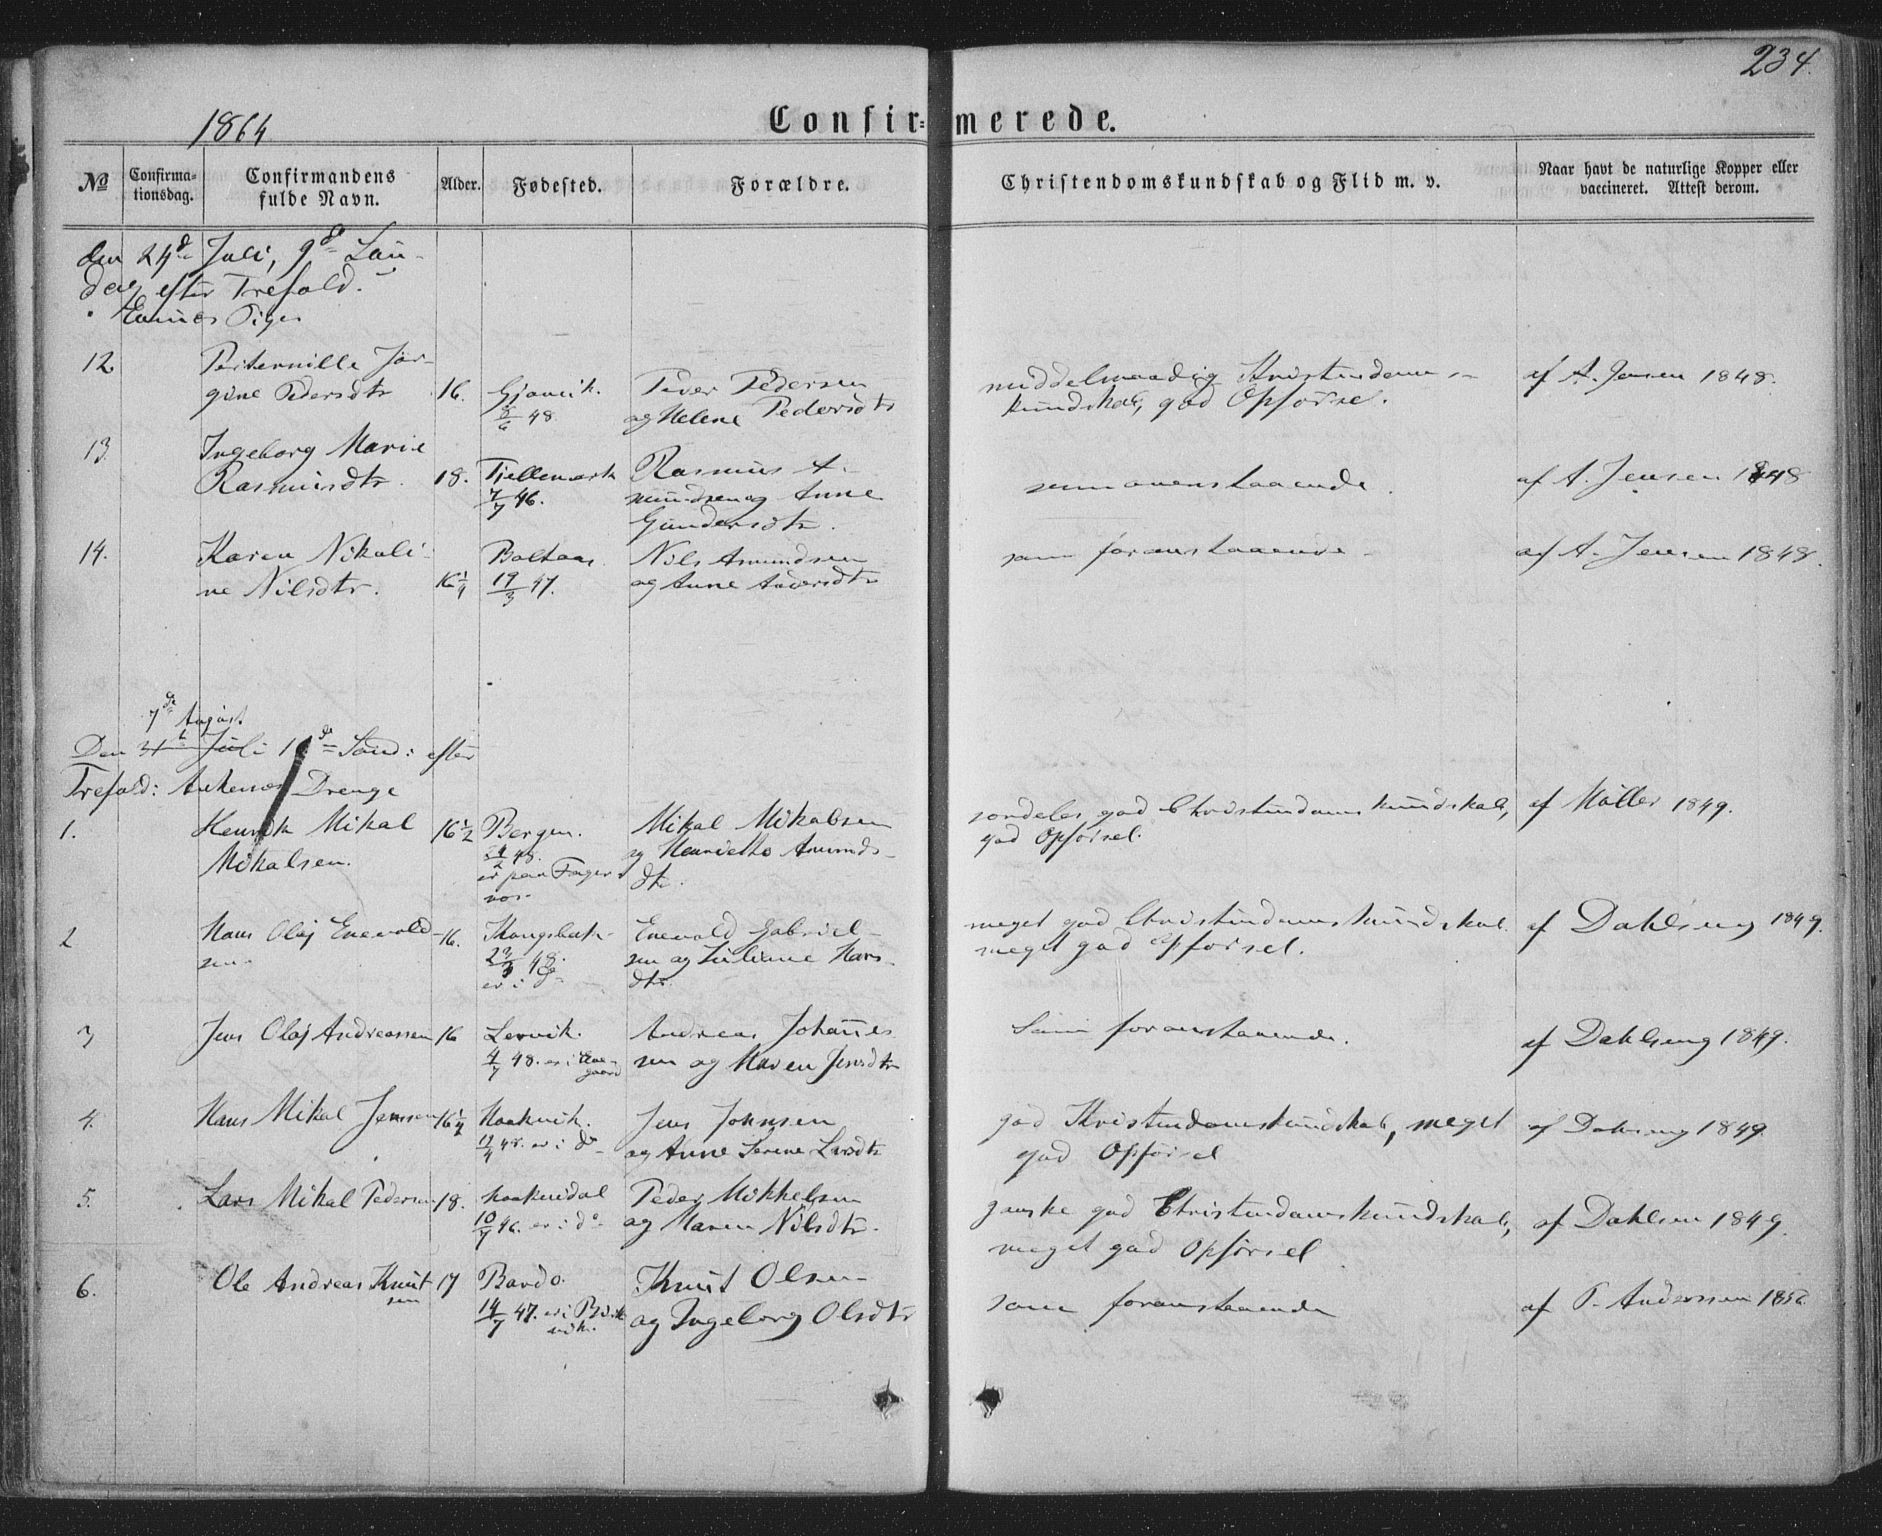 234.
1864
Confir= merede.
No
Confirma-
tionsdag.
Confirmandens
fulde Navn.
Alder.
Fødested.
Forældre.
Christendomskundskab og Flid m. v.
Naar havt de naturlige Kopper eller
vaccineret. Attest derom.
den 24de Juli, 9de Søn-
dag efter Trefold.
Piger
12 Petternille Jør-
gine Pedersdtr 16. Gjøvik. 8/6 48. Peder Pedersen
og Helene Pedersdtr
middelmaadig Kristendoms-
kundskab, god Opførsel.
af A. Jensen 1848.
13. Ingeborg Marie
Rasmusdtr. 18. 7/7 46. Rasmus A-
mundsen og Anne
Gundersdtr.
som ovenstaaende.
af A. Jensen 1848
14. Karen Nikoli-
ne Nilsdtr. 16 1/4 Boltaas. 19/3 47. Nils Amundsen
og Anne Andersdtr
som foranstaaende
af A. Jensen 1848.
7de August
Den 31te Juli 1 de Sønd: efter
Trefold: Ankenes Drenge
1. Henrik Mikal
Mikalsen. 16 1/2 Bergen. 48.
er paa Fager-
nes
Mikal Mikalsen
og Henriette Amunds-
dtr.
særdeles god Christendomskundskab,
god Opførsel.
af Møller 1849.
2 Hans Olaj Enevold-
sen. 16. 23/3 48.
er i do
Enevold Gabriel-
sen og Juliane Hans-
dtr.
meget god Christendomskundskab
meget god Opførsel.
af Dahlseng 1849.
3 Jens Olaj Andreassen 16 Lervik.
4/7 48. er i
Andreas Johannes-
sen og Maren Jensdtr
Som foranstaaende.
af Dahlseng 1849.
4. Hans Mikal Jensen 16 1/4 Haakvik.
12/4 48. er i do
Jens Johnsen
og Anne Serene Larsdtr
god Kristendomskundskab, meget
god Opførsel
af Dahlseng 1849.
5. Lars Mikal Pedersen 18. Haakvidal
10/7 46. er i do
Peder Mikkelsen
og Maren Nilsdtr.
ganske god Christendomskundskab,
meget god Opførsel
af Dahlsen 1849.
6. Ole Andreas Knut-
sen 17 Bardo.
14/7 47. er i
Knut Olsen
og Ingeborg Olsdtr
som foranstaaende
af P. Andersen